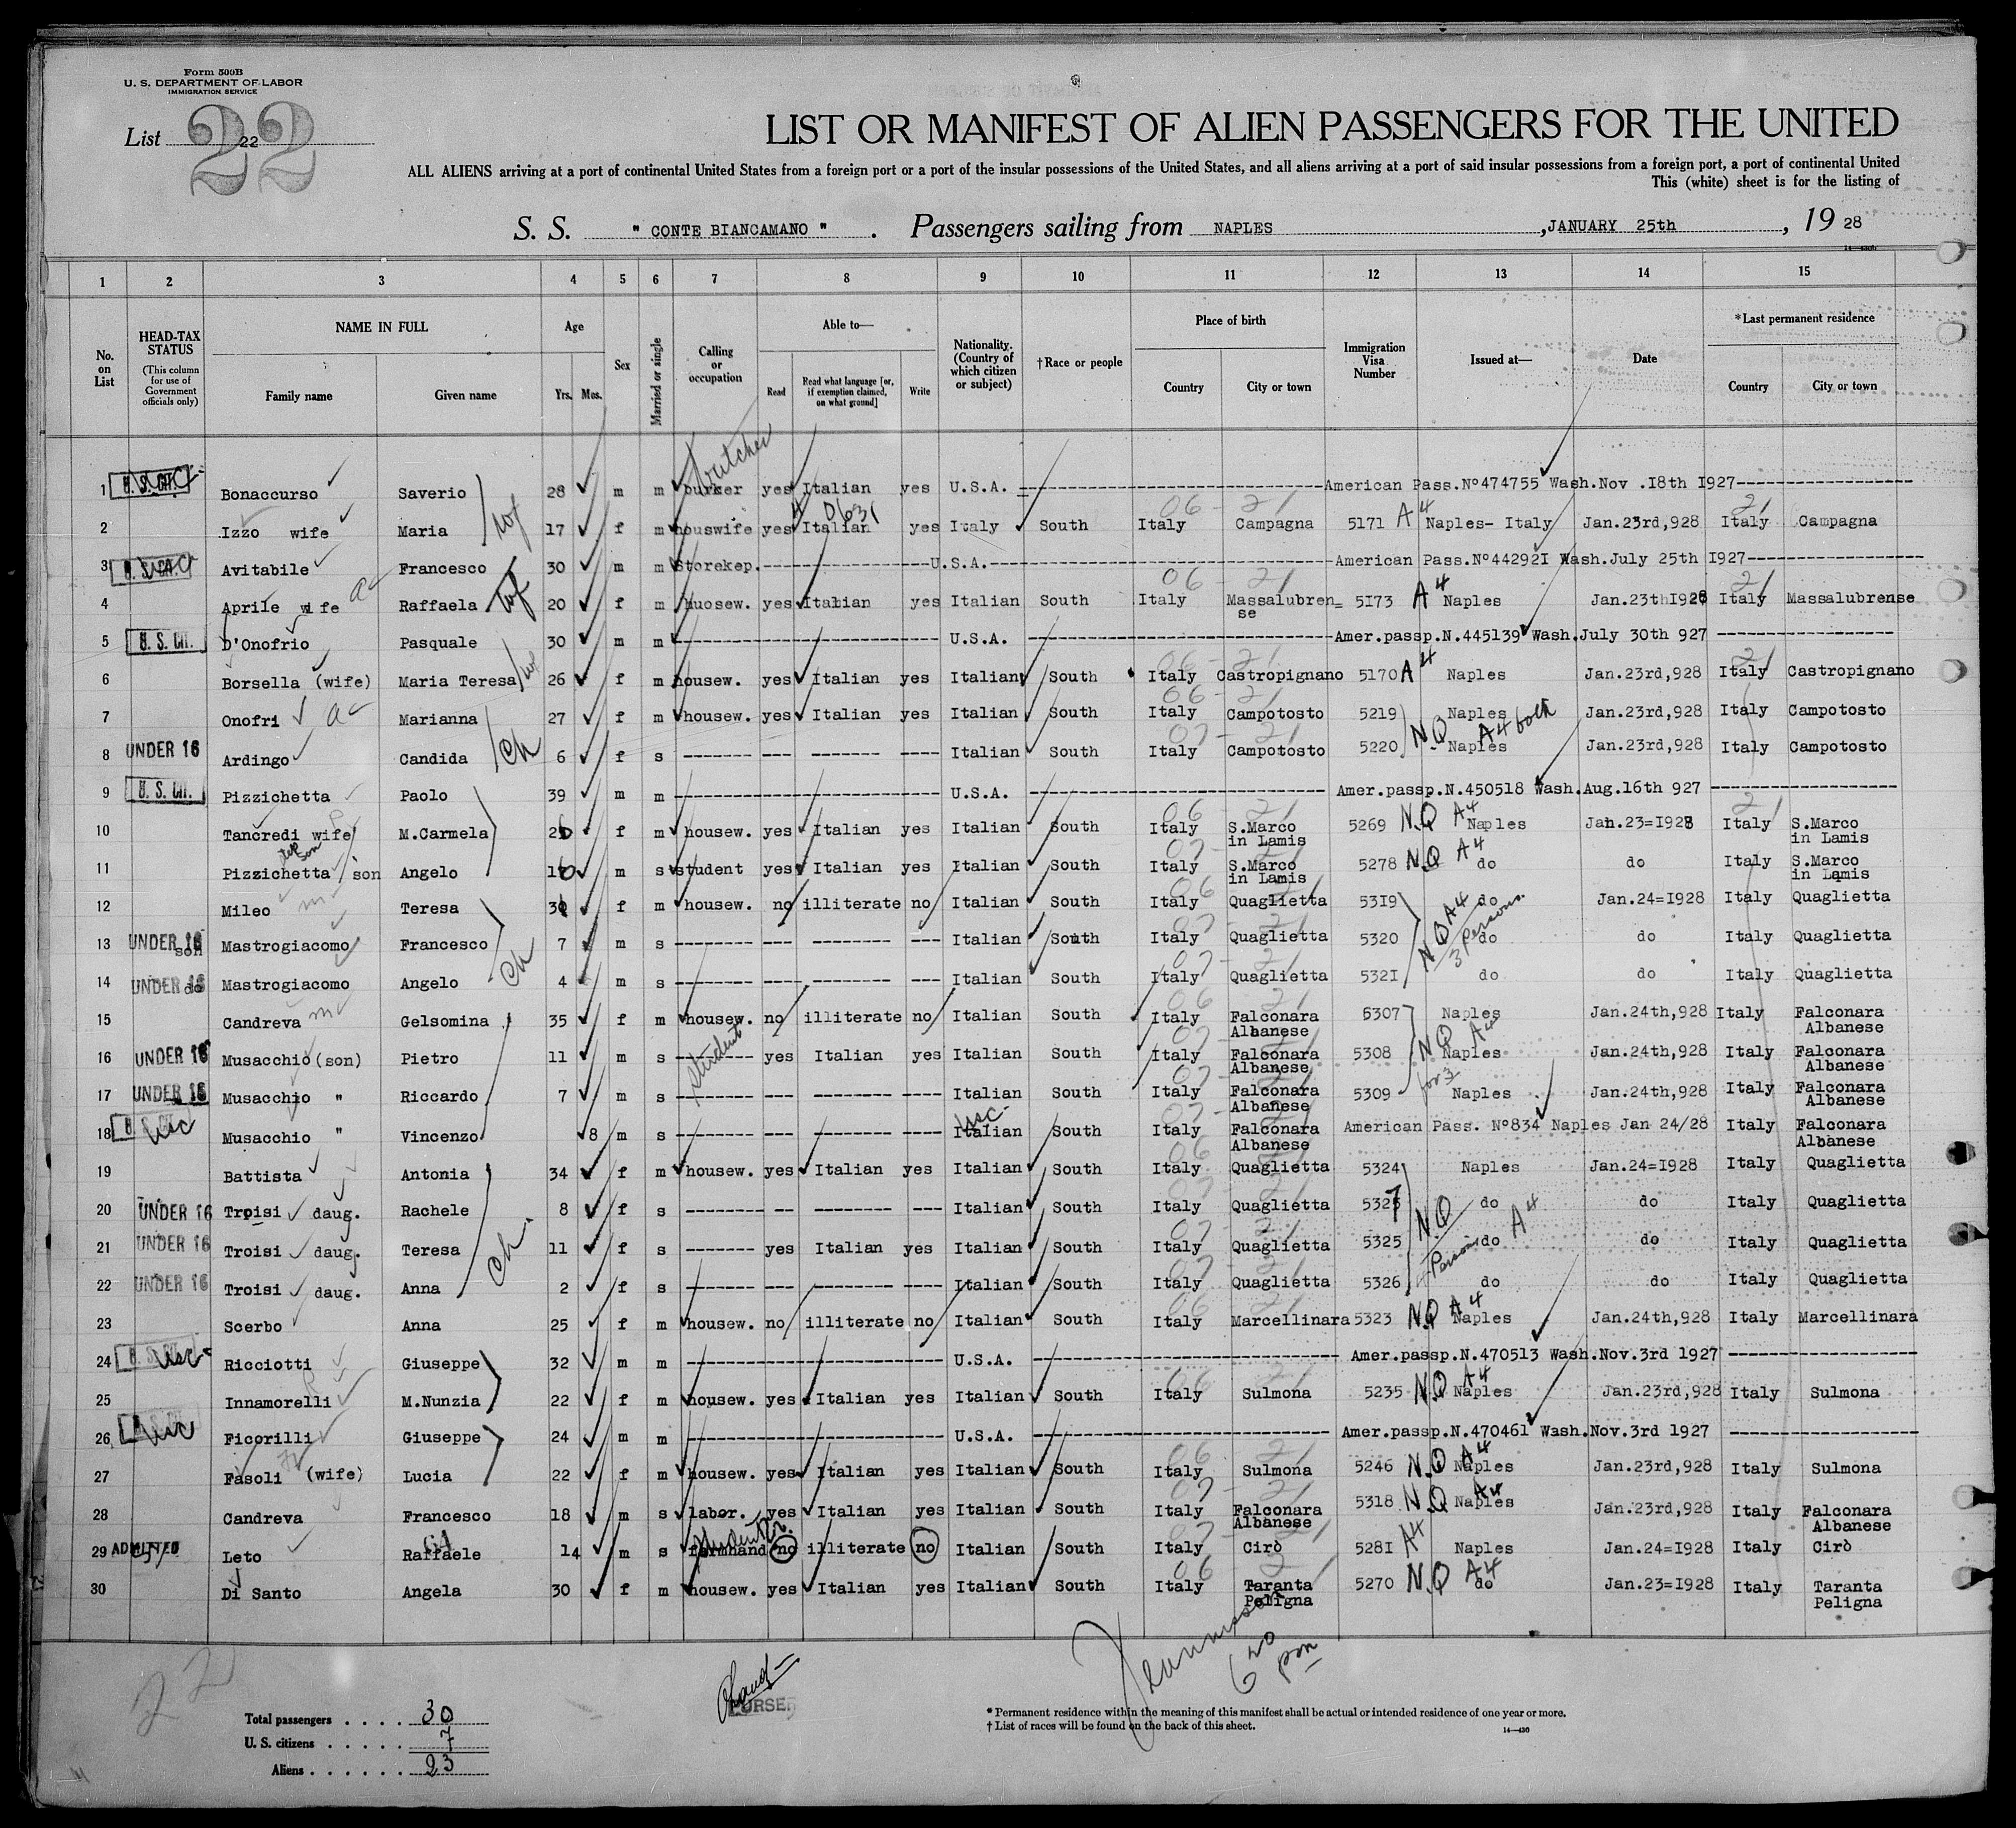 Form 500B
U. S. DEPARTMENT OF LABOR
IMMIGRATION SERVICE
List 22 22
LIST OR MANIFEST OF ALIEN PASSENGERS FOR THE UNITED
ALL ALIENS arriving at a port of continental United States from a foreign port or a port of the insular possessions of the United States, and all aliens arriving at a port of said insular possessions from a foreign port, a port of continental United
This (white) sheet is for the listing of
S. S. " CONTE BIANCAMANO " . Passengers sailing from NAPLES , JANUARY 25th , 19 28
1 2 3 4 5 6 7 8 9 10 11 12 13 14 15
No. on List
HEAD-TAX STATUS (This column for use of Government officials only)
NAME IN FULL Family name Given name
Age Yrs. Mos.
Sex
Married or single
Calling or occupation
Able to— Read Read what language [or, if exemption claimed, on what ground] Write
Nationality. (Country of which citizen or subject)
†Race or people
Place of birth Country City or town
Immigration Visa Number
Issued at—
Date
*Last permanent residence Country City or town
1 U. S. CIT. Bonaccurso Saverio 28 m m butcher yes Italian yes U.S.A. American Pass.Nº474755 Wash.Nov .18th 1927
2 Izzo wife Maria wf 17 f m houswife yes Italian yes Italy South Italy Campagna 5171 A4 Naples- Italy Jan.23rd,928 Italy Campagna
3 Avitabile Francesco 30 m m Storekep. U.S.A. American Pass.Nº442921 Wash.July 25th 1927
4 Aprile wife Raffaela wf 20 f m huosew. yes Italian yes Italian South Italy Massalubrense 5173 A4 Naples Jan.23th1928 Italy Massalubrense
5 U. S. CIT. D'Onofrio Pasquale 30 m m U.S.A. Amer.passp.N.445139 Wash.July 30th 927
6 Borsella (wife) Maria Teresa wf 26 f m housew. yes Italian yes Italian South Italy Castropignano 5170 A4 Naples Jan.23rd,928 Italy Castropignano
7 Onofri Marianna 27 f m housew. yes Italian yes Italian South Italy Campotosto 5219 Naples Jan.23rd,928 Italy Campotosto
8 UNDER 16 Ardingo Candida ch 6 f s Italian South Italy Campotosto 5220 NQ A4 both Naples Jan.23rd,928 Italy Campotosto
9 U. S. CIT. Pizzichetta Paolo 39 m m U.S.A. Amer.passp.N.450518 Wash.Aug.16th 927
10 Tancredi wife M.Carmela f m housew. yes Italian yes Italian South Italy S.Marco in Lamis 5269 NQ A4 Naples Jan.23=1928 Italy S.Marco in Lamis
11 Pizzichetta son Angelo m s student yes Italian yes Italian South Italy S.Marco in Lamis 5278 NQ A4 do do Italy S.Marco in Lamis
12 Mileo Teresa f m housew. no illiterate no Italian South Italy Quaglietta 5319 do Jan.24=1928 Italy Quaglietta
13 UNDER 16 son Mastrogiacomo Francesco 7 m s Italian South Italy Quaglietta 5320 NQ A4 3 Persons do do Italy Quaglietta
14 UNDER 16 do Mastrogiacomo Angelo ch 4 m s Italian South Italy Quaglietta 5321 do do Italy Quaglietta
15 Candreva Gelsomina 35 f m housew. no illiterate no Italian South Italy Falconara Albanese 5307 Naples Jan.24th,928 Italy Falconara Albanese
16 UNDER 16 Musacchio (son) Pietro 11 m s student yes Italian yes Italian South Italy Falconara Albanese 5308 NQ A4 for 3 Naples Jan.24th,928 Italy Falconara Albanese
17 UNDER 16 Musacchio " Riccardo 7 m s Italian South Italy Falconara Albanese 5309 Naples Jan.24th,928 Italy Falconara Albanese
18 usc Musacchio " Vincenzo 8 m s usc Italian South Italy Falconara Albanese American Pass. Nº834 Naples Jan 24/28 Italy Falconara Albanese
19 Battista Antonia 34 f m housew. yes Italian yes Italian South Italy Quaglietta 5324 Naples Jan.24=1928 Italy Quaglietta
20 UNDER 16 Troisi daug. Rachele 8 f s Italian South Italy Quaglietta 5327 do do Italy Quaglietta
21 UNDER 16 Troisi daug. Teresa ch. 11 f s yes Italian yes Italian South Italy Quaglietta 5325 NQ Persons A4 do do Italy Quaglietta
22 UNDER 16 Troisi daug. Anna 2 f s Italian South Italy Quaglietta 5326 do do Italy Quaglietta
23 Scerbo Anna 25 f m housew. no illiterate no Italian South Italy Marcellinara 5323 NQ A4 Naples Jan.24th,928 Italy Marcellinara
24 usc Ricciotti Giuseppe 32 m m U.S.A. Amer.passp.N.470513 Wash.Nov.3rd 1927
25 Innamorelli M.Nunzia 22 f m housew. yes Italian yes Italian South Italy Sulmona 5235 NQ A4 Naples Jan.23rd,928 Italy Sulmona
26 usc Ficorilli Giuseppe 24 m m U.S.A. Amer.passp.N.470461 Wash.Nov.3rd 1927
27 Fasoli (wife) Lucia 22 f m housew. yes Italian yes Italian South Italy Sulmona 5246 NQ A4 Naples Jan.23rd,928 Italy Sulmona
28 Candreva Francesco 18 m s labor. yes Italian yes Italian South Italy Falconara Albanese 5318 NQ A4 Naples Jan.23rd,928 Italy Falconara Albanese
29 ADMITTED Leto Raffaele 14 m s farmhand student no illiterate no Italian South Italy Cirò 5281 A4 Naples Jan.24=1928 Italy Cirò
30 Di Santo Angela 30 f m housew. yes Italian yes Italian South Italy Taranta Peligna 5270 NQ A4 do Jan.23=1928 Italy Taranta Peligna
22
PURSER
6 20 pm
Total passengers . . . . 30
U. S. citizens . . . . . 7
Aliens . . . . . . 23
* Permanent residence within the meaning of this manifest shall be actual or intended residence of one year or more.
† List of races will be found on the back of this sheet.
14—430